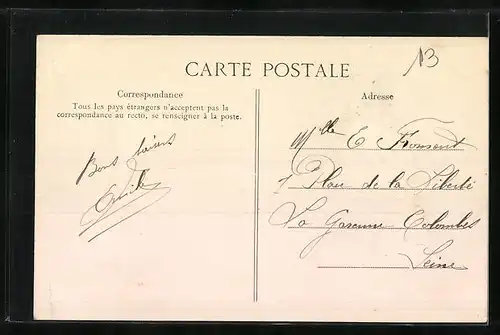 CARTE POSTALE
13
Correspondance
Tous les pays étrangers n'acceptent pas la
correspondance au recto, se renseigner à la poste.
Bons baisers
Adresse
Mlle E Froment
1 Place de la Liberté
La Garenne Colombes
Seine